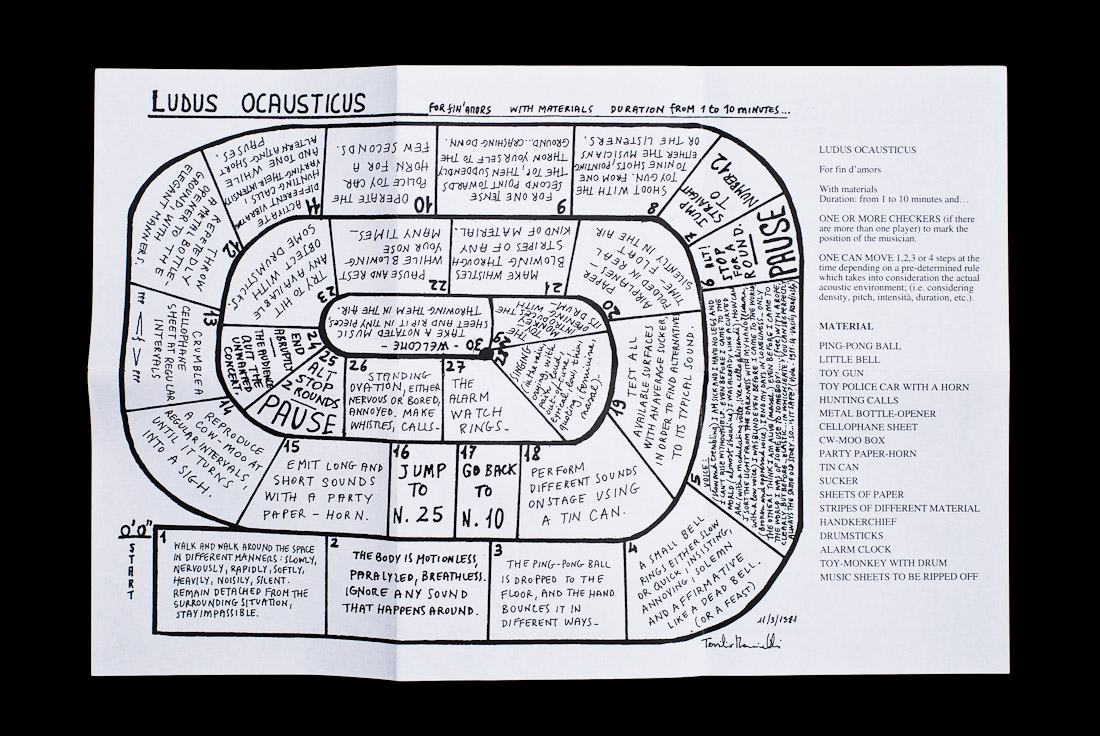 LUDUS OCAUSTICUS
FOR FIN'AMORS WITH MATERIALS DURATION FROM 1 to 10 MINUTES...
0'0"
START
1
WALK AND WALK AROUND THE SPACE
IN DIFFERENT MANNERS: SLOWLY,
NERVOUSLY, RAPIDLY, SOFTLY,
HEAVILY, NOISILY, SILENT.
REMAIN DETACHED FROM THE
SURROUNDING SITUATION,
STAY IMPASSIBLE.
2
THE BODY IS MOTIONLESS,
PARALYLED, BREATHLESS.
IGNORE ANY SOUND
THAT HAPPENS AROUND.
3
THE PING-PONG BALL
IS DROPPED TO THE
FLOOR, AND THE HAND
BOUNCES IT IN
DIFFERENT WAYS-
4
A SMALL BELL
RINGS EITHER SLOW
OR QUICK, INSISTING,
ANNOYING, SOLEMN
AND AFFIRMATIVE
LIKE A DEAD BELL.
(OR A FEAST)
5
VOICE:
(slow and trembling) I AM SICK AND I HAVE NO LEGS AND
I CAN'T RISE WITHOUT HELP. EVEN BEFORE I CAME TO THE
WORLD I WAS ALREADY LIKE A CURVED
THE SAME OLD STORY. SO.. IS IT SAFE?
6 ALT!
STOP
FOR A
ROUND.
PAUSE
7
JUMP
STRAIGHT
TO
NUMBER 12
8
SHOOT WITH THE
TOY GUN, FROM ONE
TO NINE SHOTS, POINTING
EITHER THE MUSICIANS
OR THE LISTENERS.
9
FOR ONE TENSE
SECOND POINT TOWARDS
THE TOP, THEN SUDDENLY
THROW YOURSELF TO THE
GROUND... CRASHING DOWN.
10
OPERATE THE
POLICE TOY CAR
HORN FOR A
FEW SECONDS.
11
ACTIVATE
DIFFERENT VIBRANT
HUNTING CALLS,
VARYING THEIR INTENSITY
AND TONE WHILE
ALTERNATING SHORT
PAUSES.
12
THROW
REPETEDLY
A METAL BOTTLE-
OPENER TO THE
GROUND, WITH
ELEGANT MANNERS.
13
CRUMBLE A
CELLOPHANE
SHEET AT REGULAR
INTERVALS
14
REPRODUCE
A COW-MOO AT
REGULAR INTERVALS,
UNTIL IT TURNS
INTO A SIGH.
15
EMIT LONG AND
SHORT SOUNDS
WITH A PARTY
PAPER-HORN.
16
JUMP
TO
N. 25
17
GO BACK
TO
N. 10
18
PERFORM
DIFFERENT SOUNDS
ONSTAGE USING
A TIN CAN.
19
TEST ALL
AVAILABLE SURFACES
WITH AN AVERAGE SUCKER,
IN ORDER TO FIND ALTERNATIVE
TO ITS TYPICAL SOUND.
20
PAPER
AIRPLANES
FOLDED IN REAL-
TIME, FLOAT
SILENTLY IN THE AIR
21
MAKE WHISTLES
BLOWING THROUGH
STRIPES OF ANY
KIND OF MATERIAL.
22
PAUSE AND REST
WHILE BLOWING
YOUR NOSE
MANY TIMES-
23
TRY TO HIT
ANY AVAILABLE
OBJECT WITH
SOME DRUMSTICKS.
24
END
ABRUPTLY.
THE AUDIENCE
QUIT THE
UNWANTED
CONCERT.
25
ALT
STOP
2 ROUNDS
PAUSE
26
STANDING
OVATION, EITHER
NERVOUS OR BORED,
ANNOYED. MAKE
WHISTLES, CALLS-
27
THE
ALARM
WATCH
RINGS-
28
SINGING
29
THE TOY
MONKEY
DRUMS WITH
ITS DRUM-
30
- WELCOME -
TAKE A NOTATED MUSIC
SHEET AND RIP IT IN TINY PIECES
THROWING THEM IN THE AIR.
11/3/1981
LUDUS OCAUSTICUS
For fin d'amors
With materials
Duration: from 1 to 10 minutes and…
ONE OR MORE CHECKERS (if there
are more than one player) to mark the
position of the musician.
ONE CAN MOVE 1,2,3 or 4 steps at the
time depending on a pre-determined rule
which takes into consideration the actual
acoustic environment; (i.e. considering
density, pitch, intensità, duration, etc.).
MATERIAL
PING-PONG BALL
LITTLE BELL
TOY GUN
TOY POLICE CAR WITH A HORN
HUNTING CALLS
METAL BOTTLE-OPENER
CELLOPHANE SHEET
CW-MOO BOX
PARTY PAPER-HORN
TIN CAN
SUCKER
SHEETS OF PAPER
STRIPES OF DIFFERENT MATERIAL
HANDKERCHIEF
DRUMSTICKS
ALARM CLOCK
TOY-MONKEY WITH DRUM
MUSIC SHEETS TO BE RIPPED OFF